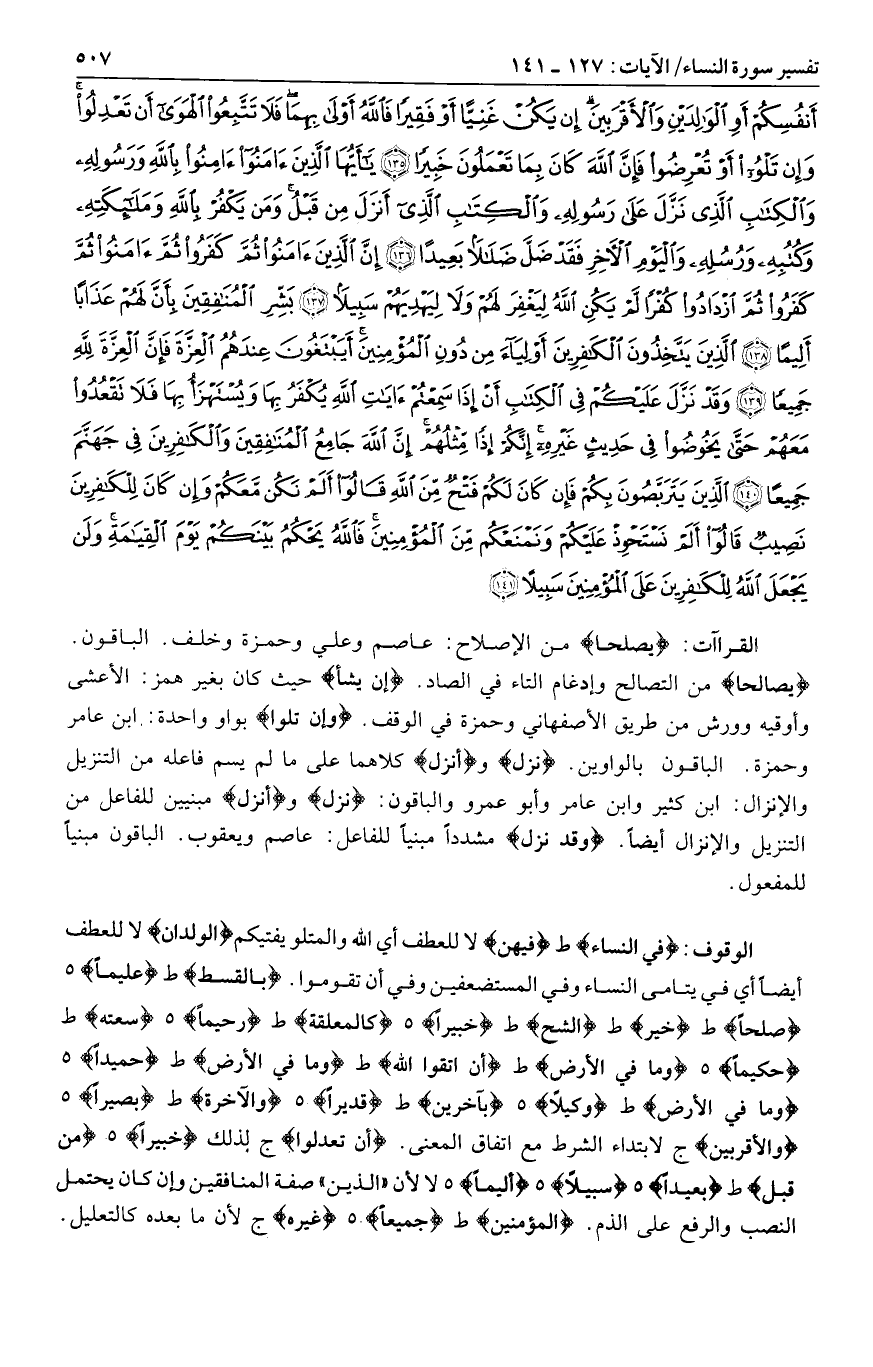 تفسير سورة النساء/ الآيات: ١٢٧ ـ ١٤١ ٥٠٧
أَنفُسِكُمْ أَوِ ٱلْوَٰلِدَيْنِ وَٱلْأَقْرَبِينَۚ إِن يَكُنْ غَنِيًّا أَوْ فَقِيرًا فَٱللَّهُ أَوْلَىٰ بِهِمَاۖ فَلَا تَتَّبِعُوا۟ ٱلْهَوَىٰٓ أَن تَعْدِلُوا۟ۚ
وَإِن تَلْوُۥٓا۟ أَوْ تُعْرِضُوا۟ فَإِنَّ ٱللَّهَ كَانَ بِمَا تَعْمَلُونَ خَبِيرًا ١٣٥ يَٰٓأَيُّهَا ٱلَّذِينَ ءَامَنُوٓا۟ ءَامِنُوا۟ بِٱللَّهِ وَرَسُولِهِۦ
وَٱلْكِتَٰبِ ٱلَّذِى نَزَّلَ عَلَىٰ رَسُولِهِۦ وَٱلْكِتَٰبِ ٱلَّذِىٓ أَنزَلَ مِن قَبْلُۚ وَمَن يَكْفُرْ بِٱللَّهِ وَمَلَٰٓئِكَتِهِۦ
وَكُتُبِهِۦ وَرُسُلِهِۦ وَٱلْيَوْمِ ٱلْءَاخِرِ فَقَدْ ضَلَّ ضَلَٰلًۢا بَعِيدًا ١٣٦ إِنَّ ٱلَّذِينَ ءَامَنُوا۟ ثُمَّ كَفَرُوا۟ ثُمَّ ءَامَنُوا۟ ثُمَّ
كَفَرُوا۟ ثُمَّ ٱزْدَادُوا۟ كُفْرًا لَّمْ يَكُنِ ٱللَّهُ لِيَغْفِرَ لَهُمْ وَلَا لِيَهْدِيَهُمْ سَبِيلًۢا ١٣٧ بَشِّرِ ٱلْمُنَٰفِقِينَ بِأَنَّ لَهُمْ عَذَابًا
أَلِيمًا ١٣٨ ٱلَّذِينَ يَتَّخِذُونَ ٱلْكَٰفِرِينَ أَوْلِيَآءَ مِن دُونِ ٱلْمُؤْمِنِينَۚ أَيَبْتَغُونَ عِندَهُمُ ٱلْعِزَّةَ فَإِنَّ ٱلْعِزَّةَ لِلَّهِ
جَمِيعًا ١٣٩ وَقَدْ نَزَّلَ عَلَيْكُمْ فِى ٱلْكِتَٰبِ أَنْ إِذَا سَمِعْتُمْ ءَايَٰتِ ٱللَّهِ يُكْفَرُ بِهَا وَيُسْتَهْزَأُ بِهَا فَلَا تَقْعُدُوا۟
مَعَهُمْ حَتَّىٰ يَخُوضُوا۟ فِى حَدِيثٍ غَيْرِهِۦٓۚ إِنَّكُمْ إِذًا مِّثْلُهُمْۗ إِنَّ ٱللَّهَ جَامِعُ ٱلْمُنَٰفِقِينَ وَٱلْكَٰفِرِينَ فِى جَهَنَّمَ
جَمِيعًا ١٤٠ ٱلَّذِينَ يَتَرَبَّصُونَ بِكُمْ فَإِن كَانَ لَكُمْ فَتْحٌ مِّنَ ٱللَّهِ قَالُوٓا۟ أَلَمْ نَكُن مَّعَكُمْ وَإِن كَانَ لِلْكَٰفِرِينَ
نَصِيبٌ قَالُوٓا۟ أَلَمْ نَسْتَحْوِذْ عَلَيْكُمْ وَنَمْنَعْكُم مِّنَ ٱلْمُؤْمِنِينَۚ فَٱللَّهُ يَحْكُمُ بَيْنَكُمْ يَوْمَ ٱلْقِيَٰمَةِۚ وَلَن
يَجْعَلَ ٱللَّهُ لِلْكَٰفِرِينَ عَلَى ٱلْمُؤْمِنِينَ سَبِيلًا ١٤١
القراآت: ﴿يصلحا﴾ من الإصلاح: عاصم وعلي وحمزة وخلف. الباقون.
﴿يصالحا﴾ من التصالح وإدغام التاء في الصاد. ﴿إن يشأ﴾ حيث كان بغير همز: الأعشى
وأوقيه وورش من طريق الأصفهاني وحمزة في الوقف. ﴿وإن تلوا﴾ بواو واحدة: ابن عامر
وحمزة. الباقون بالواوين. ﴿نزل﴾ و﴿أنزل﴾ كلاهما على ما لم يسم فاعله من التنزيل
والإنزال: ابن كثير وابن عامر وأبو عمرو والباقون: ﴿نزل﴾ و﴿أنزل﴾ مبنيين للفاعل من
التنزيل والإنزال أيضاً. ﴿وقد نزل﴾ مشدداً مبنياً للفاعل: عاصم ويعقوب. الباقون مبنياً
للمفعول.
الوقوف: ﴿في النساء﴾ ط ﴿فيهن﴾ لا للعطف أي الله والمتلو يفتيكم﴿الولدان﴾ لا للعطف
أيضاً أي في يتامى النساء وفي المستضعفين وفي أن تقوموا. ﴿بالقسط﴾ ط ﴿عليماً﴾ ٥
﴿صلحاً﴾ ط ﴿خير﴾ ط ﴿الشح﴾ ط ﴿خبيراً﴾ ٥ ﴿كالمعلقة﴾ ط ﴿رحيماً﴾ ٥ ﴿سعته﴾ ط
﴿حكيماً﴾ ٥ ﴿وما في الأرض﴾ ط ﴿أن اتقوا الله﴾ ط ﴿وما في الأرض﴾ ط ﴿حميداً﴾ ٥
﴿وما في الأرض﴾ ط ﴿وكيلاً﴾ ٥ ﴿بآخرين﴾ ط ﴿قديراً﴾ ٥ ﴿والآخرة﴾ ط ﴿بصيراً﴾ ٥
﴿والأقربين﴾ ج لابتداء الشرط مع اتفاق المعنى. ﴿أن تعدلوا﴾ ج لذلك ﴿خبيراً﴾ ٥ ﴿من
قبل﴾ ط ﴿بعيداً﴾ ٥ ﴿سبيلاً﴾ ٥ ﴿أليماً﴾ ٥ لا لأن «الذين» صفة المنافقين وإن كان يحتمل
النصب والرفع على الذم. ﴿المؤمنين﴾ ط ﴿جميعاً﴾ ٥ ﴿غيره﴾ ج لأن ما بعده كالتعليل.